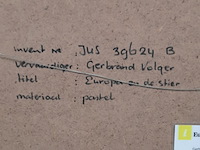 invent № JUS 39624 B
vervaardiger : Gerbrand Volger
titel : Europa en de stier
materiaal : pastel